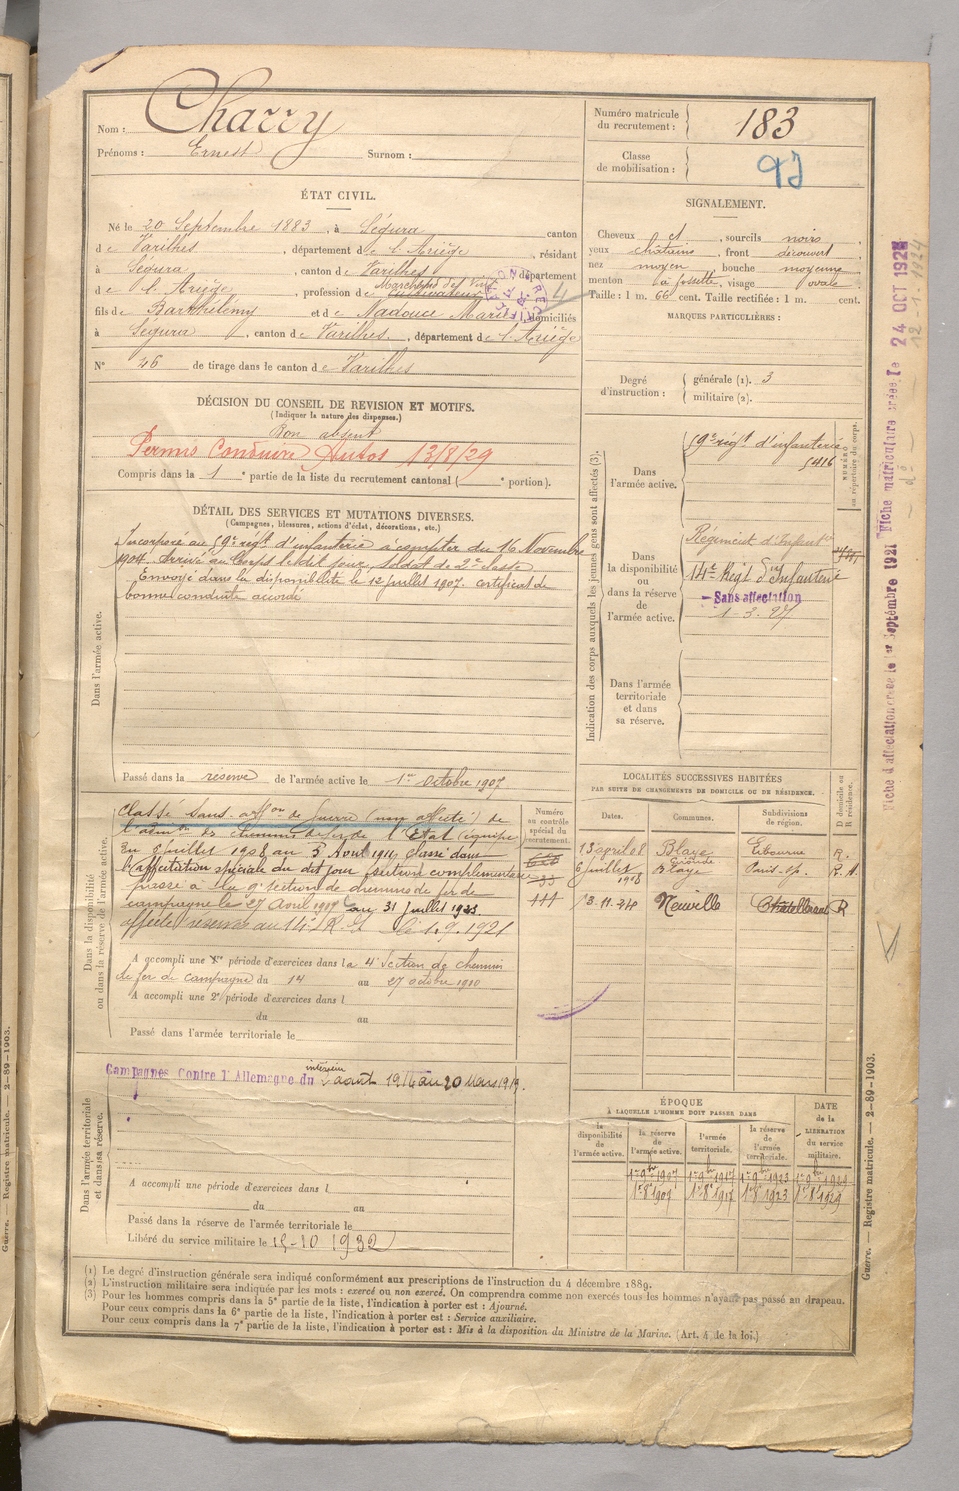 Nom : Charry
Prénoms : Ernest Surnom :
Numéro matricule du recrutement : 183
Classe de mobilisation :
ÉTAT CIVIL.
Né le 20 Septembre 1883, à Ségura canton
de Varilhes, département de l'Ariège, résidant
à Ségura, canton de Varilhes département
de l'Ariège, profession de
fils de Barthélemy et de Nadouce Marie domiciliés
à Ségura, canton de Varilhes, département de l'Ariège
N° 46 de tirage dans le canton de Varilhes
SIGNALEMENT.
Cheveux et, sourcils noirs,
yeux châtains, front découvert
nez moyen, bouche moyenne
menton à fossette, visage ovale
Taille : 1 m. 66 cent. Taille rectifiée : 1 m. cent.
MARQUES PARTICULIÈRES :
Degré d'instruction : générale (1). 3
militaire (2).
DÉCISION DU CONSEIL DE REVISION ET MOTIFS.
(Indiquer la nature des dispenses.)
Bon absent
Permis Conduire Autos 13/8/29
Compris dans la 1e partie de la liste du recrutement cantonal ( e portion).
DÉTAIL DES SERVICES ET MUTATIONS DIVERSES.
(Campagnes, blessures, actions d'éclat, décorations, etc.)
Dans l'armée active.
Incorporé au 59e régt d'infanterie à compter du 16 Novembre
1904. Arrivé au Corps le dit jour, soldat de 2e classe
Envoyé dans la disponibilité le 12 juillet 1907. certificat de
bonne conduite accordé
Passé dans la réserve de l'armée active le 1er octobre 1907
Indication des corps auxquels les jeunes gens sont affectés (3).
NUMÉRO au répertoire du corps.
Dans l'armée active.
59e régt d'infanterie
5416
Dans la disponibilité ou dans la réserve de l'armée active.
Régiment d'Infanterie
14e Régt d'Infanterie
Sans affectation
1-3-27
Dans l'armée territoriale et dans sa réserve.
Dans la disponibilité ou dans la réserve de l'armée active.
Classé sans affon de guerre (non affecté) de
l'admon des chemins de fer de l'État (équipe
du 8 juillet 1908 au 3 Août 1911, classé dans
l'affectation spéciale du dit jour, section complémentaire
passé à la 9e section de chemins de fer de
campagne le 27 avril 1917 au 31 juillet 1923.
affecté réserve au 14e R I le 1.9.1921
A accompli une 1re période d'exercices dans la 4e Section de chemin
de fer de campagne du 14 au 27 octobre 1910
A accompli une 2e période d'exercices dans l
du au
Passé dans l'armée territoriale le
Numéro au contrôle spécial du recrutement.
LOCALITÉS SUCCESSIVES HABITÉES
PAR SUITE DE CHANGEMENTS DE DOMICILE OU DE RÉSIDENCE.
Dates. Communes. Subdivisions de région. D domicile ou R résidence.
13 août 08 Blaye Gironde Libourne R.
6 juillet 1908 Blaye Paris-sp.
13.11.24 Neuville Chatellerault R
Dans l'armée territoriale et dans sa réserve.
Campagnes Contre l'Allemagne du intérieur 2 août 1914 au 20 Mars 1919.
A accompli une période d'exercices dans l
du au
Passé dans la réserve de l'armée territoriale le
Libéré du service militaire le 15-10 1932
ÉPOQUE
À LAQUELLE L'HOMME DOIT PASSER DANS
la disponibilité de l'armée active.
la réserve de l'armée active.
l'armée territoriale.
la réserve de l'armée territoriale.
DATE de la LIBÉRATION du service militaire.
1er 9bre 1907 1er 9bre 1917 1er 9bre 1923 1er 9bre 1929
1er 8e 1907 1er 8e 1917 1er 8e 1923 1er 8e 1929
(1) Le degré d'instruction générale sera indiqué conformément aux prescriptions de l'instruction du 4 décembre 1889.
(2) L'instruction militaire sera indiquée par les mots : exercé ou non exercé. On comprendra comme non exercés tous les hommes n'ayant pas passé au drapeau.
(3) Pour les hommes compris dans la 5e partie de la liste, l'indication à porter est : Ajourné.
Pour ceux compris dans la 6e partie de la liste, l'indication à porter est : Service auxiliaire.
Pour ceux compris dans la 7e partie de la liste, l'indication à porter est : Mis à la disposition du Ministre de la Marine. (Art. 4 de la loi.)
Guerre. — Registre matricule. — 2-89-1903.
Guerre. — Registre matricule. — 2-89-1903.
Fiche d'affectation créée le 1er Septembre 1921 Fiche matriculaire créée le 24 OCT 1924